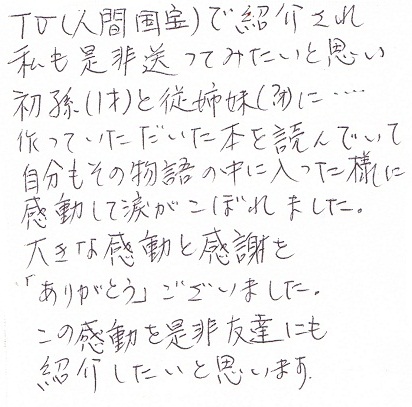 TV(人間国宝)で紹介され
私も是非送ってみたいと思い
初孫(1才)と従姉妹(3才)に‥‥
作っていただいた本を読んでいて
自分もその物語の中に入った様に
感動して涙がこぼれました。
大きな感動と感謝を
「ありがとう」ございました。
この感動を是非友達にも
紹介したいと思います。